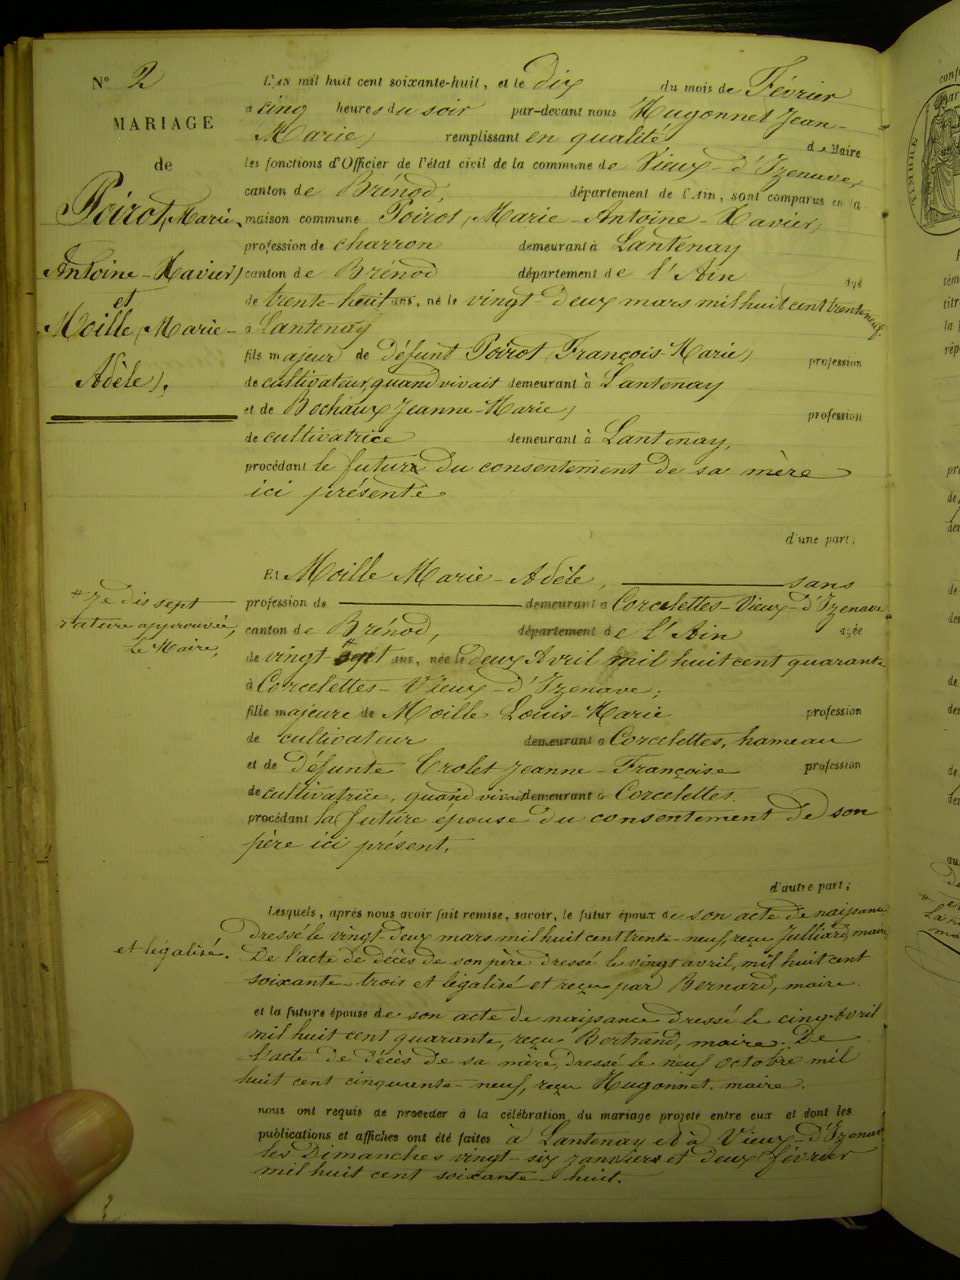 N° 2
MARIAGE
de
Poirot (Marie
Antoine-Xavier)
et
Moille (Marie-
Adèle).
L'AN mil huit cent soixante-huit, et le dix du mois de Février
à cinq heures du soir par-devant nous Hugonnet Jean-
Marie, remplissant en qualité de Maire
les fonctions d'Officier de l'état civil de la commune de Vieux-d'Izenave,
canton de Brénod, département de l'Ain, sont comparus en la
maison commune Poirot (Marie-Antoine-Xavier)
profession de charron demeurant à Lantenay
canton de Brénod département de l'Ain âgé
de trente-huit ans, né le vingt deux mars mil huit cent trente neuf
à Lantenay
fils majeur de défunt Poirot (François-Marie) profession
de cultivateur quand vivait demeurant à Lantenay
et de Bochaux Jeanne-Marie, profession
de cultivatrice demeurant à Lantenay,
procédant le futur du consentement de sa mère
ici présente.
d'une part;
Et Moille Marie-Adèle, sans
profession de demeurant à Corcelettes-Vieux-d'Izenave
canton de Brénod, département de l'Ain âgée
de vingt-sept ans, née le deux Avril mil huit cent quarante
à Corcelettes-Vieux-d'Izenave;
fille majeure de Moille Louis-Marie profession
de cultivateur demeurant à Corcelettes, hameau
et de défunte Crolet Jeanne-Françoise profession
de cultivatrice, quand vivait demeurant à Corcelettes.
procédant la future épouse du consentement de son
père ici présent.
# Je dis sept
rature approuvée,
Le Maire,
d'autre part;
Lesquels, après nous avoir fait remise, savoir, le futur époux de son acte de naissance
dressé le vingt-deux mars mil huit cent trente-neuf, reçu Julliard, maire
et légalisé.
De l'acte de décès de son père dressé le vingt avril, mil huit cent
soixante-trois et légalisé et reçu par Bernard, maire.
et la future épouse de son acte de naissance dressé le cinq Avril
mil huit cent quarante, reçu Bertrand, maire. De
l'acte de décès de sa mère, dressé le neuf octobre mil
huit cent cinquante-neuf, reçu Hugonnet, maire.
nous ont requis de procéder à la célébration du mariage projeté entre eux et dont les
publications et affiches ont été faites à Lantenay et à Vieux-d'Izenave
les Dimanches vingt-six janvier et deux février
mil huit cent soixante-huit.
TIMBRE